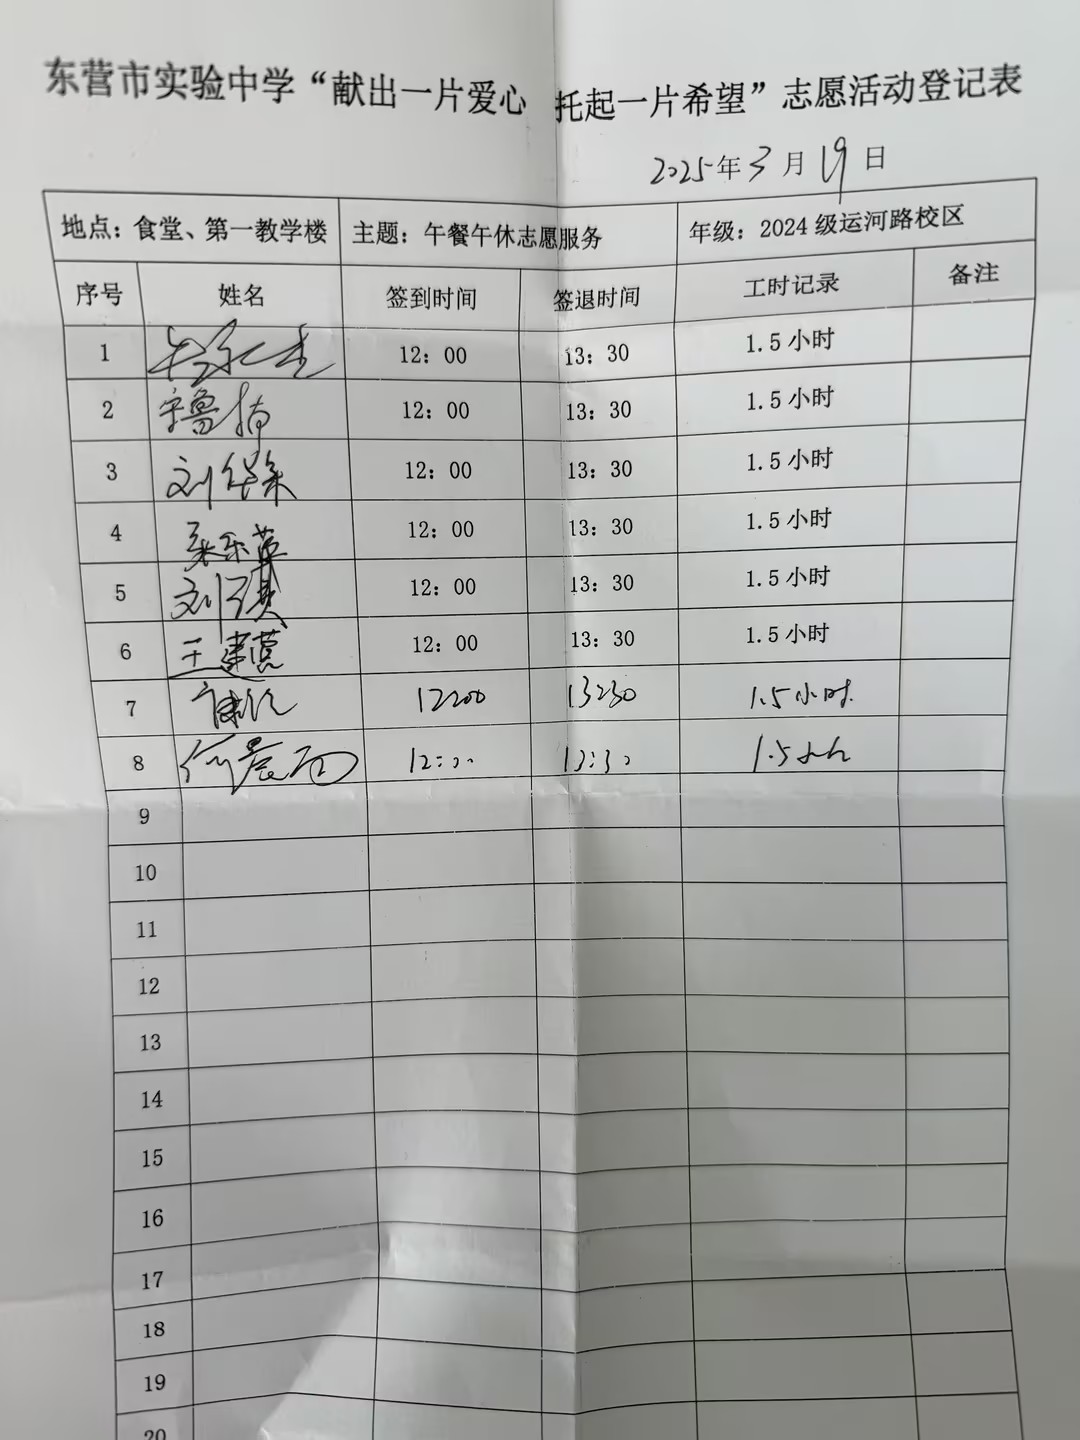 东营市实验中学“献出一片爱心 托起一片希望”志愿活动登记表
2025年3月19日
地点：食堂、第一教学楼 主题：午餐午休志愿服务 年级：2024级运河路校区
序号 姓名 签到时间 签退时间 工时记录 备注
1 12：00 13：30 1.5小时
2 12：00 13：30 1.5小时
3 刘 12：00 13：30 1.5小时
4 12：00 13：30 1.5小时
5 刘 12：00 13：30 1.5小时
6 王建 12：00 13：30 1.5小时
7 12:00 13:30 1.5小时
8 何晨雨 12:00 13:30 1.5小时
9
10
11
12
13
14
15
16
17
18
19
20